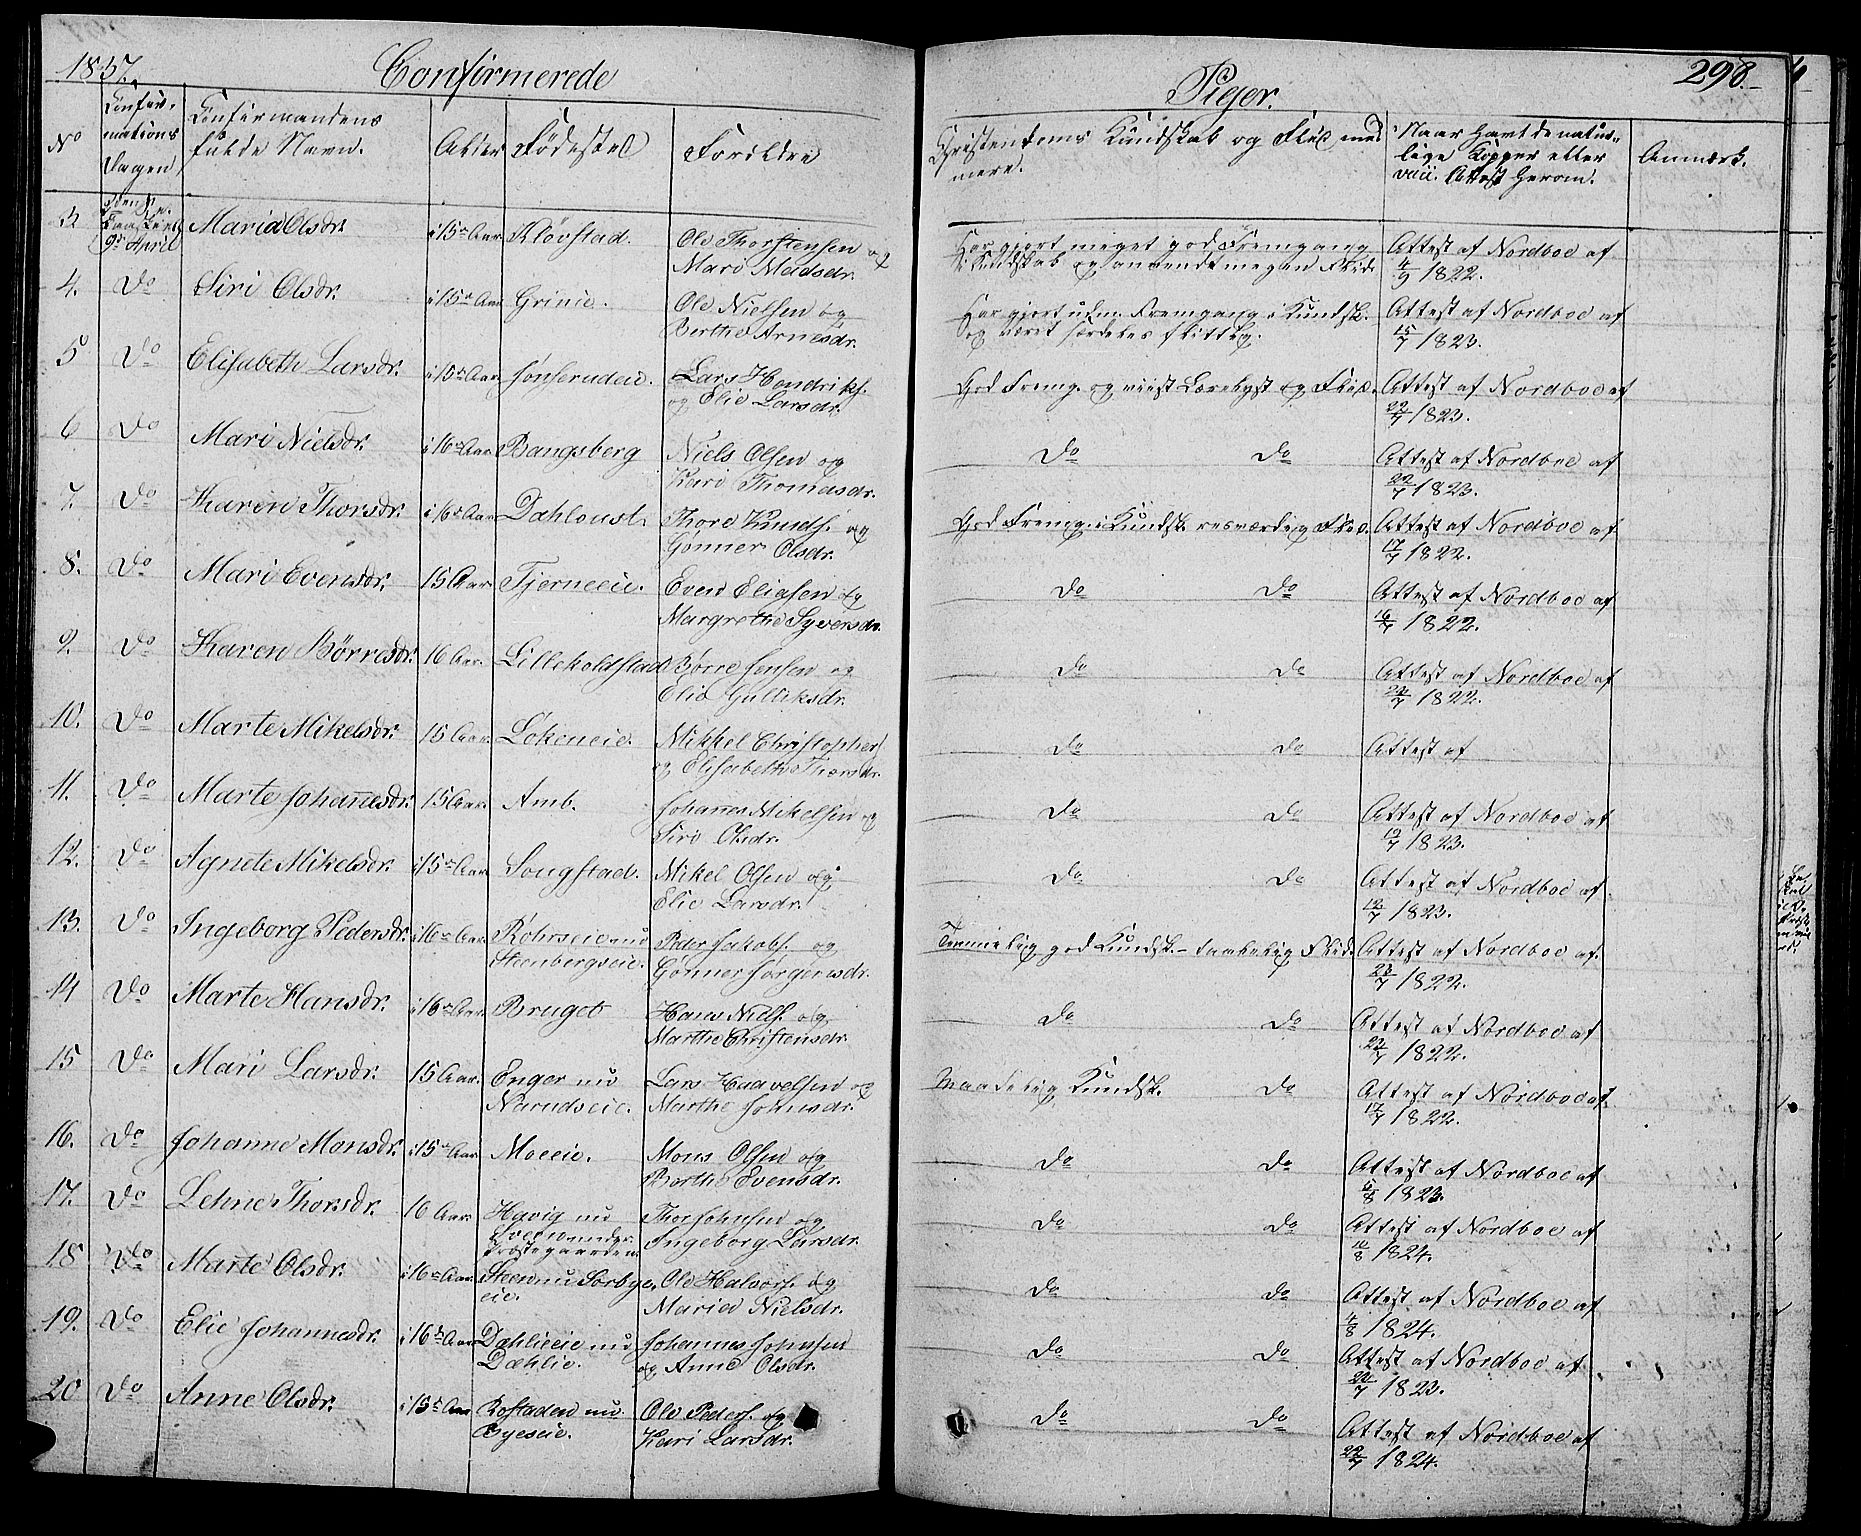 1837. Confirmerede Piger. 298.
No Confirmations Dagen Confirmandens fulde Navn. Alder Födested Forældre Christendoms Kundskab og Flid med mere. Naar havt de naturlige Kopper eller vacc. Attest herom. Anmærk.
3 9de April Maria Olsdr. i 15de Aar Kløvstad. Ole Thorstensen og Mari Madsdr. Har gjort meget god Fremgang i Kundskab og anvendt megen Flid. Attest af Nordboe af 4/9 1822.
4. Do Siri Olsdr. i 15de Aar Grinie. Ole Nielsen og Berthe Arnesdr. Har gjort udm. Fremgang i Kundsk. og været særdeles flittig. Attest af Nordboe af 15/7 1823.
5 Do Elisabeth Larsdr. i 15de Aar Lars Hendriks. og Elie Larsdr. God Fremg. og viist Lærelyst og Flid. Attest af Nordboe af 22/7 1823.
6 Do Mari Nielsdr. i 16de Aar Bangsberg Niels Olsen og Kari Thomasdr. Do Do Attest af Nordboe af 22/7 1823.
7. Do Karen Thorsdr. i 16de Aar Thore Knuds. og Gønner Olsdr. God Fremg. i Kundsk. rosværdig Flid. Attest af Nordboe af 17/7 1822.
8. Do Mari Evensdr. 15 Aar. Tjerneeie. Even Eliasen og Margrethe Syversdr. Do Do Attest af Nordboe af 16/7 1822.
9. Do Karen Börresdr. 16 Aar. Lilleholdstad Börre Jensen og Elie Gulliksdr. Do Do Attest af Nordboe af 22/7 1822.
10. Do Marte Mikelsdr. 15 Aar. Lökeneie. Mikkel Christophers. og Elisabeth Thorsdr. Do Do Attest af
11. Do Marte Johannesdr. 15 Aar. Amb. Johannes Mikelsen og Siri Olsdr. Do Do Attest af Nordboe af 12/7 1823.
12. Do Agnete Mikelsdr. i 15de Aar Songstad. Mikel Olsen og Elie Larsdr. Do Do Attest af Nordboe af 12/7 1823.
13. Do Ingeborg Pedersdr. i 16de Aar Röhrseie nu Steenbergseie. Peder Jakobs. og Gönner Jörgensdr. Temmelig god Kundsk. - taalelig Flid. Attest af Nordboe af 23/7 1822.
14 Do Marte Hansdr. i 16de Aar Bruget Hans Niels. og Marthe Christensdr. Do Do Attest af Nordboe af 23/7 1822.
15 Do Mari Larsdr. 15 Aar. Enger nu Narudseie. Lars Haavelsen og Marthe Johnsdr. Maadelig Kundsk. Do Attest af Nordboe af 17/7 1822.
16. Do Johanne Monsdr. i 15de Aar Moeeie. Mons Olsen og Berthe Evensdr. Do Do Attest af Nordboe af 5/8 1823.
17. Do Lehne Thorsdr. 16 Aar. Havig nu Præstegaarden. Thor Johnsen og Ingeborg Larsdr. Do Do Attest af Nordboe af 10/8 1824.
18 Do Marte Olsdr. i 16de Aar Steen nu Sorbye eie. Ole Halvors. og Maria Nielsdr. Do Do Attest af Nordboe af 4/8 1824.
19. Do Elie Johannesdr. i 16de Aar Dæhlieeie nu Dæhlie. Johannes Johnsen og Anne Olsdr. Do Do Attest af Nordboe af 22/7 1823.
20 Do Anne Olsdr. i 15de Aar Rostaden nu Byeseie. Ole Peders. og Kari Larsdr. Do Do Attest af Nordboe af 22/7 1824.